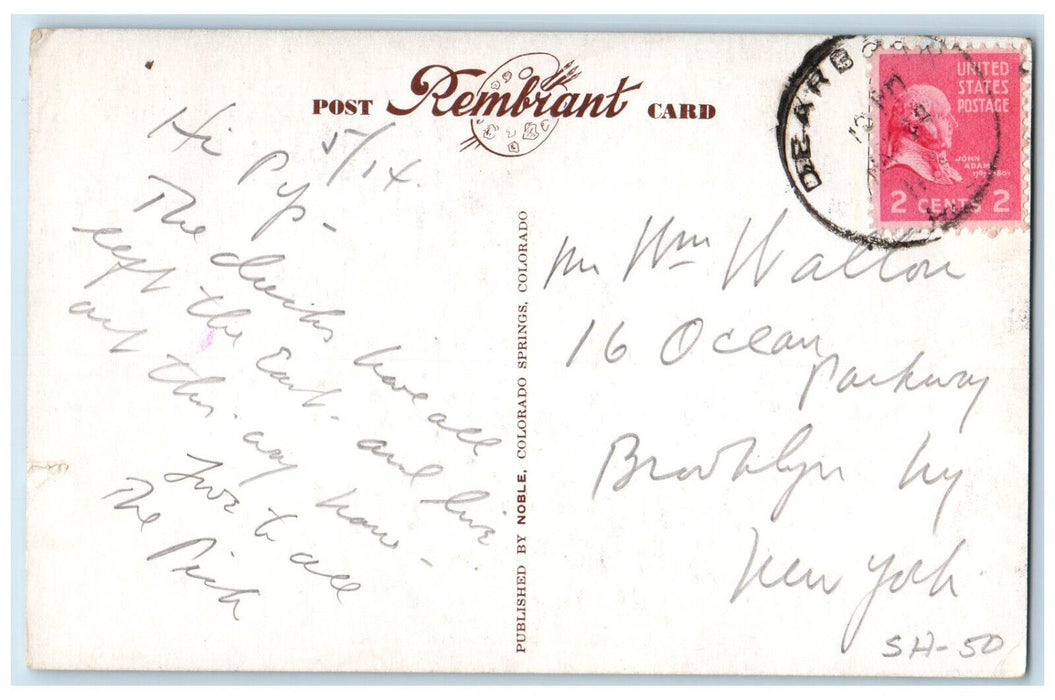 POST Rembrant CARD
DEARBO
10 AM
UNITED
STATES
POSTAGE
JOHN
ADAMS
2 CENTS 2
5/14.
Hi Pyp-
The chicks have all
left the East. and live
out this. way now -
Love to all
The
Mr Wm Walton
16 Ocean
Parkway
Brooklyn ny
New York.
SH-50
PUBLISHED BY NOBLE, COLORADO SPRINGS, COLORADO